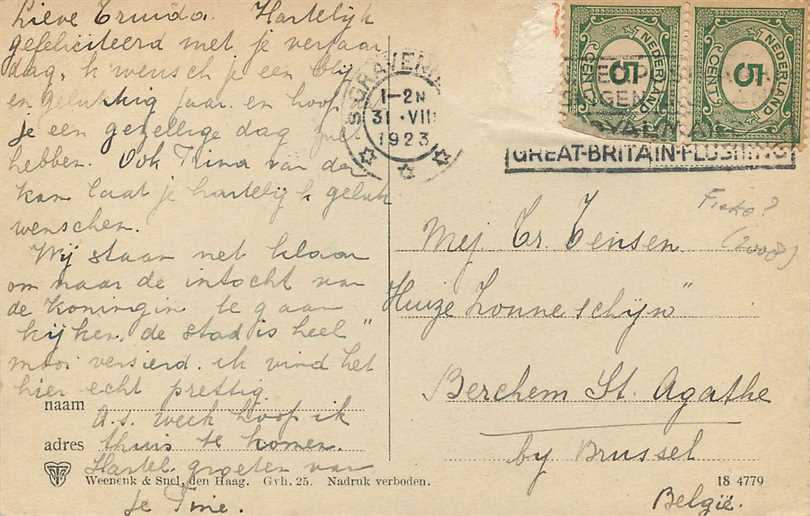 Lieve Truida. Hartelijk
gefeliciteerd met je verjaar
dag, k wensch je een blij
en gelukkig jaar en hoop
je een gezellige dag zult
hebben. Ook Trina van der
kan laat je hartelijk geluk
wenschen.
Wij staan net klaar
om naar de intocht van
de Koningin te gaan
kijken, de stad is heel
mooi versierd. ik vind het
hier echt prettig.
naam
A.s. week hoop ik
adres
thuis te komen.
Hartel. groeten van
Je Tine.
Weenenk & Snel, den Haag. Gvh. 25. Nadruk verboden.
18 4779
'S-GRAVENH
1-2N
31.VIII
1923
NEDERLAND
5
CENT
NEDERLAND
5
CENT
GREAT-BRITAIN-FLUSHING
Fiske?
(2008)
Mej. Tr. Jensen
Huize Zonneschijn"
Berchem St. Agathe
by Brussel
België.